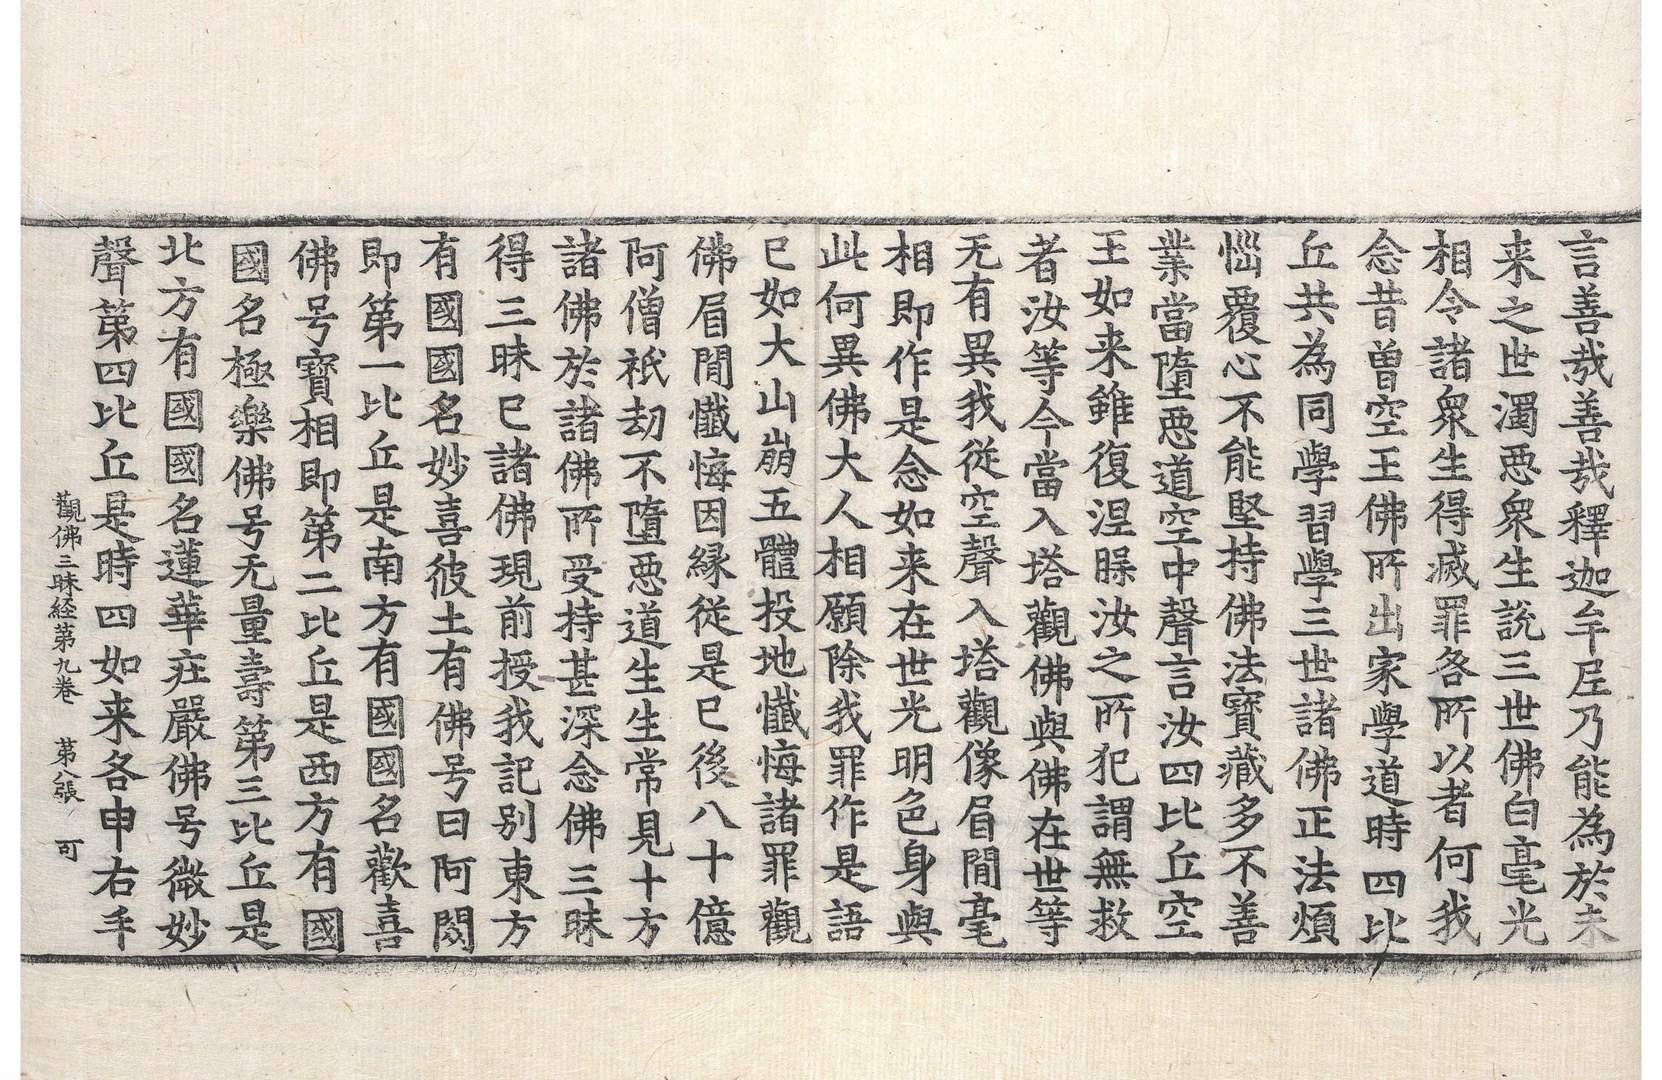 言善哉善哉釋迦牟尼乃能為於未
来之世濁惡衆生說三世佛白毫光
相令諸衆生得滅罪各所以者何我
念昔曽空王佛所出家學道時四比
丘共為同學習學三世諸佛正法煩
惱覆心不能堅持佛法寶藏多不善
業當墮惡道空中聲言汝四比丘空
王如来雖復涅槃汝之所犯謂無救
者汝等今當入塔觀佛與佛在世等
无有異我從空聲入塔觀像眉間毫
相即作是念如来在世光明色身與
此何異佛大人相願除我罪作是語
已如大山崩五體投地懺悔諸罪觀
佛眉間懺悔因緣從是已後八十億
阿僧祇劫不墮惡道生生常見十方
諸佛於諸佛所受持甚深念佛三昧
得三昧已諸佛現前授我記別東方
有國國名妙喜彼土有佛号曰阿閦
即第一比丘是南方有國國名歡喜
佛号寶相即第二比丘是西方有國
國名極樂佛号无量壽第三比丘是
北方有國國名蓮華疘嚴佛号微妙
聲第四比丘是時四如来各申右手
觀佛三昧経第九卷　第八張　可